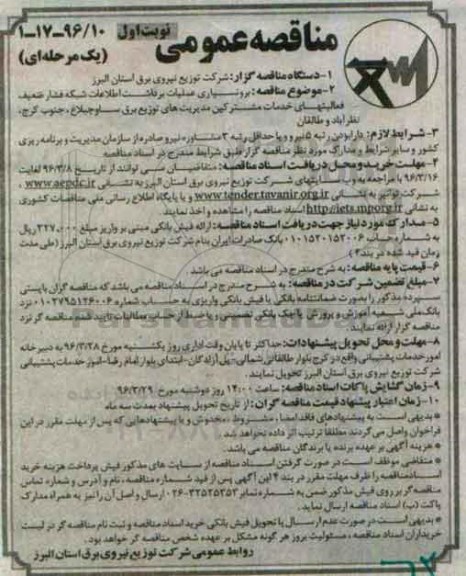 مناقصه عمومی
نوبت اول
۹۶/۱۰-۱۷-۱
(یک مرحله ای)
۱-دستگاه مناقصه گزار: شرکت توزیع نیروی برق استان البرز
۲-موضوع مناقصه: برونسپاری عملیات برداشت اطلاعات شبکه فشار ضعیف
فعالیتهای خدمات مشترکین مدیریت های توزیع برق ساوجبلاغ، جنوب کرج،
نظرآباد و طالقان
۳-شرایط لازم: دارا بودن رتبه ۵ نیرو و یا حداقل رتبه ۳ مشاوره نیرو صادره از سازمان مدیریت و برنامه ریزی
کشور و سایر شرایط و مدارک مورد نظر مناقصه گزار طبق شرایط مندرج در اسناد مناقصه
۴-مهلت خرید و محل دریافت اسناد مناقصه: متقاضیان می توانند از تاریخ ۹۶/۳/۸ لغایت
۹۶/۳/۱۶ با مراجعه به وب سایتهای شرکت توزیع نیروی برق استان البرز به نشانی www.aepdc.ir ،
شرکت توانیر به نشانی www.tender.tavanir.org.ir و یا پایگاه اطلاع رسانی ملی مناقصات کشوری
به نشانی http://iets.mporg.ir اسناد مناقصه را مشاهده و اخذ نمایند
۵-مدارک مورد نیاز جهت دریافت اسناد مناقصه: ارائه فیش بانکی مبنی بر واریز مبلغ ۳۲۷،۰۰۰ ریال
به شماره حساب ۰۱۰۱۵۲۰۱۵۲۰۰۶ بانک صادرات ایران بنام شرکت توزیع نیروی برق استان البرز (طی مدت
زمان قید شده در بند ۴)
۶-قیمت پایه مناقصه: به شرح مندرج در اسناد مناقصه می باشد
۷-مبلغ تضمین شرکت در مناقصه: به شرح مندرج در اسناد مناقصه می باشد که مناقصه گران بایستی
سپرده مذکور را بصورت ضمانتنامه بانکی یا فیش بانکی واریزی به حساب شماره ۰۱۰۲۷۹۵۱۲۶۰۰۶ نزد
بانک ملی شعبه آموزش و پرورش یا چک بانکی تضمینی و یا ضبط از حساب مطالبات تایید شده مناقصه گر نزد
مناقصه گزار ارائه نمایند.
۸-مهلت و محل تحویل پیشنهادات: حداکثر تا پایان وقت اداری روز یکشنبه مورخ ۹۶/۳/۲۸ به دبیرخانه
امور خدمات پشتیبانی واقع در کرج بلوار طالقانی شمالی-پل آزادگان-ابتدای بلوار امام رضا-البرز خدمات پشتیبانی
شرکت توزیع نیروی برق استان البرز تحویل نمایند.
۹-زمان گشایش پاکات اسناد مناقصه: ساعت ۱۴:۰۰ روز دوشنبه مورخ ۹۶/۳/۲۹
۱۰-زمان اعتبار پیشنهاد قیمت مناقصه گران: از تاریخ تحویل پیشنهاد بمدت سه ماه
* بدیهی است به پیشنهادهای فاقد امضا، مشروط، مخدوش و یا پیشنهادهایی که پس از مهلت مقرر در این
فراخوان واصل می گردند مطلقا ترتیب اثر داده نخواهد شد.
* هزینه آگهی بر عهده برنده یا برندگان مناقصه می باشد.
* متقاضی موظف است در صورت گرفتن اسناد مناقصه از سایت های مذکور فیش پرداخت هزینه خرید
اسناد مناقصه را ظرف مهلت مقرر در بند ۴ این آگهی پس از قید شماره مناقصه، نام و آدرس و شماره تماس
مناقصه گر بر روی فیش مذکور ضمن به شماره نمابر ۳۲۵۲۵۳۵۳-۰۲۶ ارسال و اصل آن را نیز به همراه مدارک
پاکت (ب) اسناد مناقصه ارسال نماید.
* بدیهی است در صورت عدم ارسال یا تحویل فیش بانکی خرید اسناد مناقصه و ثبت نام مناقصه گر در لیست
خریداران اسناد مناقصه، مسئولیت بروز هر گونه مشکل بر عهده شخص مناقصه گر خواهد بود.
روابط عمومی شرکت توزیع نیروی برق استان البرز